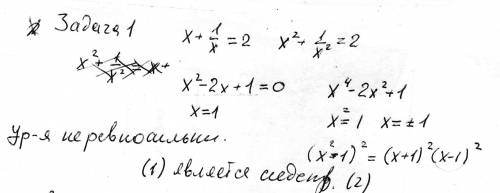 Задача 1
x + 1/x = 2   x² + 1/x² = 2
x² - 2x + 1 = 0   x⁴ - 2x² + 1
x = 1   x² = 1   x = ±1
Ур-я неравносильны.
(x² - 1)² = (x+1)²(x-1)²
(1) является следств. (2)